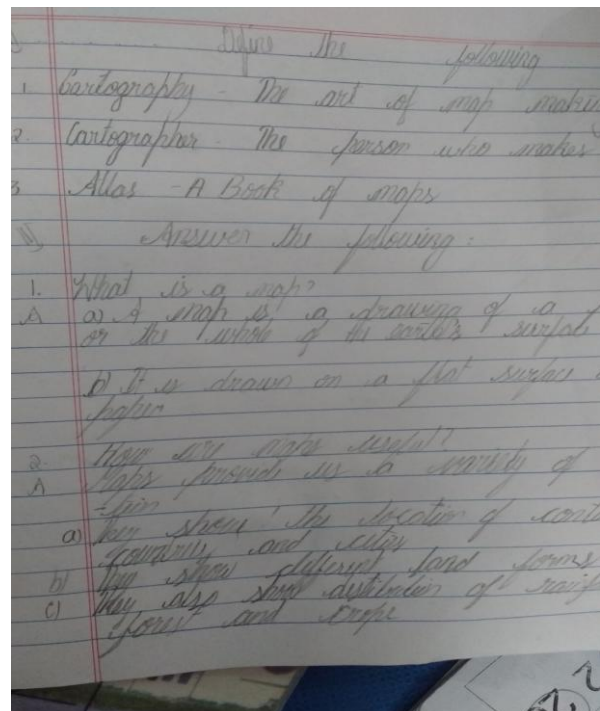 Define the following
1. Cartography - The art of map
2. Cartographer - The person who makes
3 Atlas - A Book of maps
II Answer the following :
1. What is a map?
A a) A map is a drawing of a
or the whole of the earth's surface
b) It is drawn on a flat surface
paper
2. How are maps useful?
A Maps provide us a variety of
a) They show the location of
countries and cities
b) They show different land forms
c) They also show distribution of
forest and crops